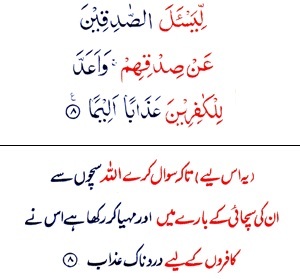 لِّيَسْـَٔلَ الصّٰدِقِيْنَ
عَنْ صِدْقِهِمْ ۚ وَاَعَدَّ
لِلْكٰفِرِيْنَ عَذَابًا اَلِيْمًا ﴿۸﴾ ع
(یہ اس لیے) تاکہ سوال کرے اللہ سچوں سے
ان کی سچائی کے بارے میں اور مہیا کر رکھا ہے اس نے
کافروں کے لیے دردناک عذاب ﴿۸﴾